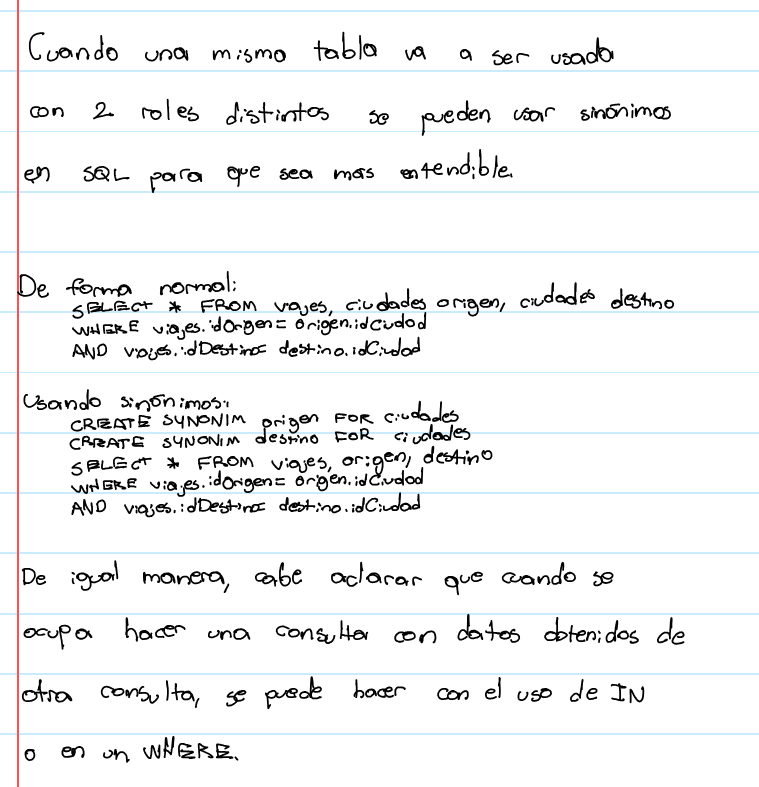 Cuando una mismo tabla va a ser usada
con 2 roles distintos se pueden usar sinónimos
en SQL para que sea mas entendible.
De forma normal:
SELECT * FROM viajes, ciudades origen, ciudades destino
WHERE viajes.idOrigen = origen.idCiudad
AND viajes.idDestino = destino.idCiudad
Usando sinónimos:
CREATE SYNONIM origen FOR ciudades
CREATE SYNONIM destino FOR ciudades
SELECT * FROM viajes, origen, destino
WHERE viajes.idOrigen = origen.idCiudad
AND viajes.idDestino = destino.idCiudad
De igual manera, cabe aclarar que cuando se
ocupa hacer una consulta con datos obtenidos de
otra consulta, se puede hacer con el uso de IN
o en un WHERE.